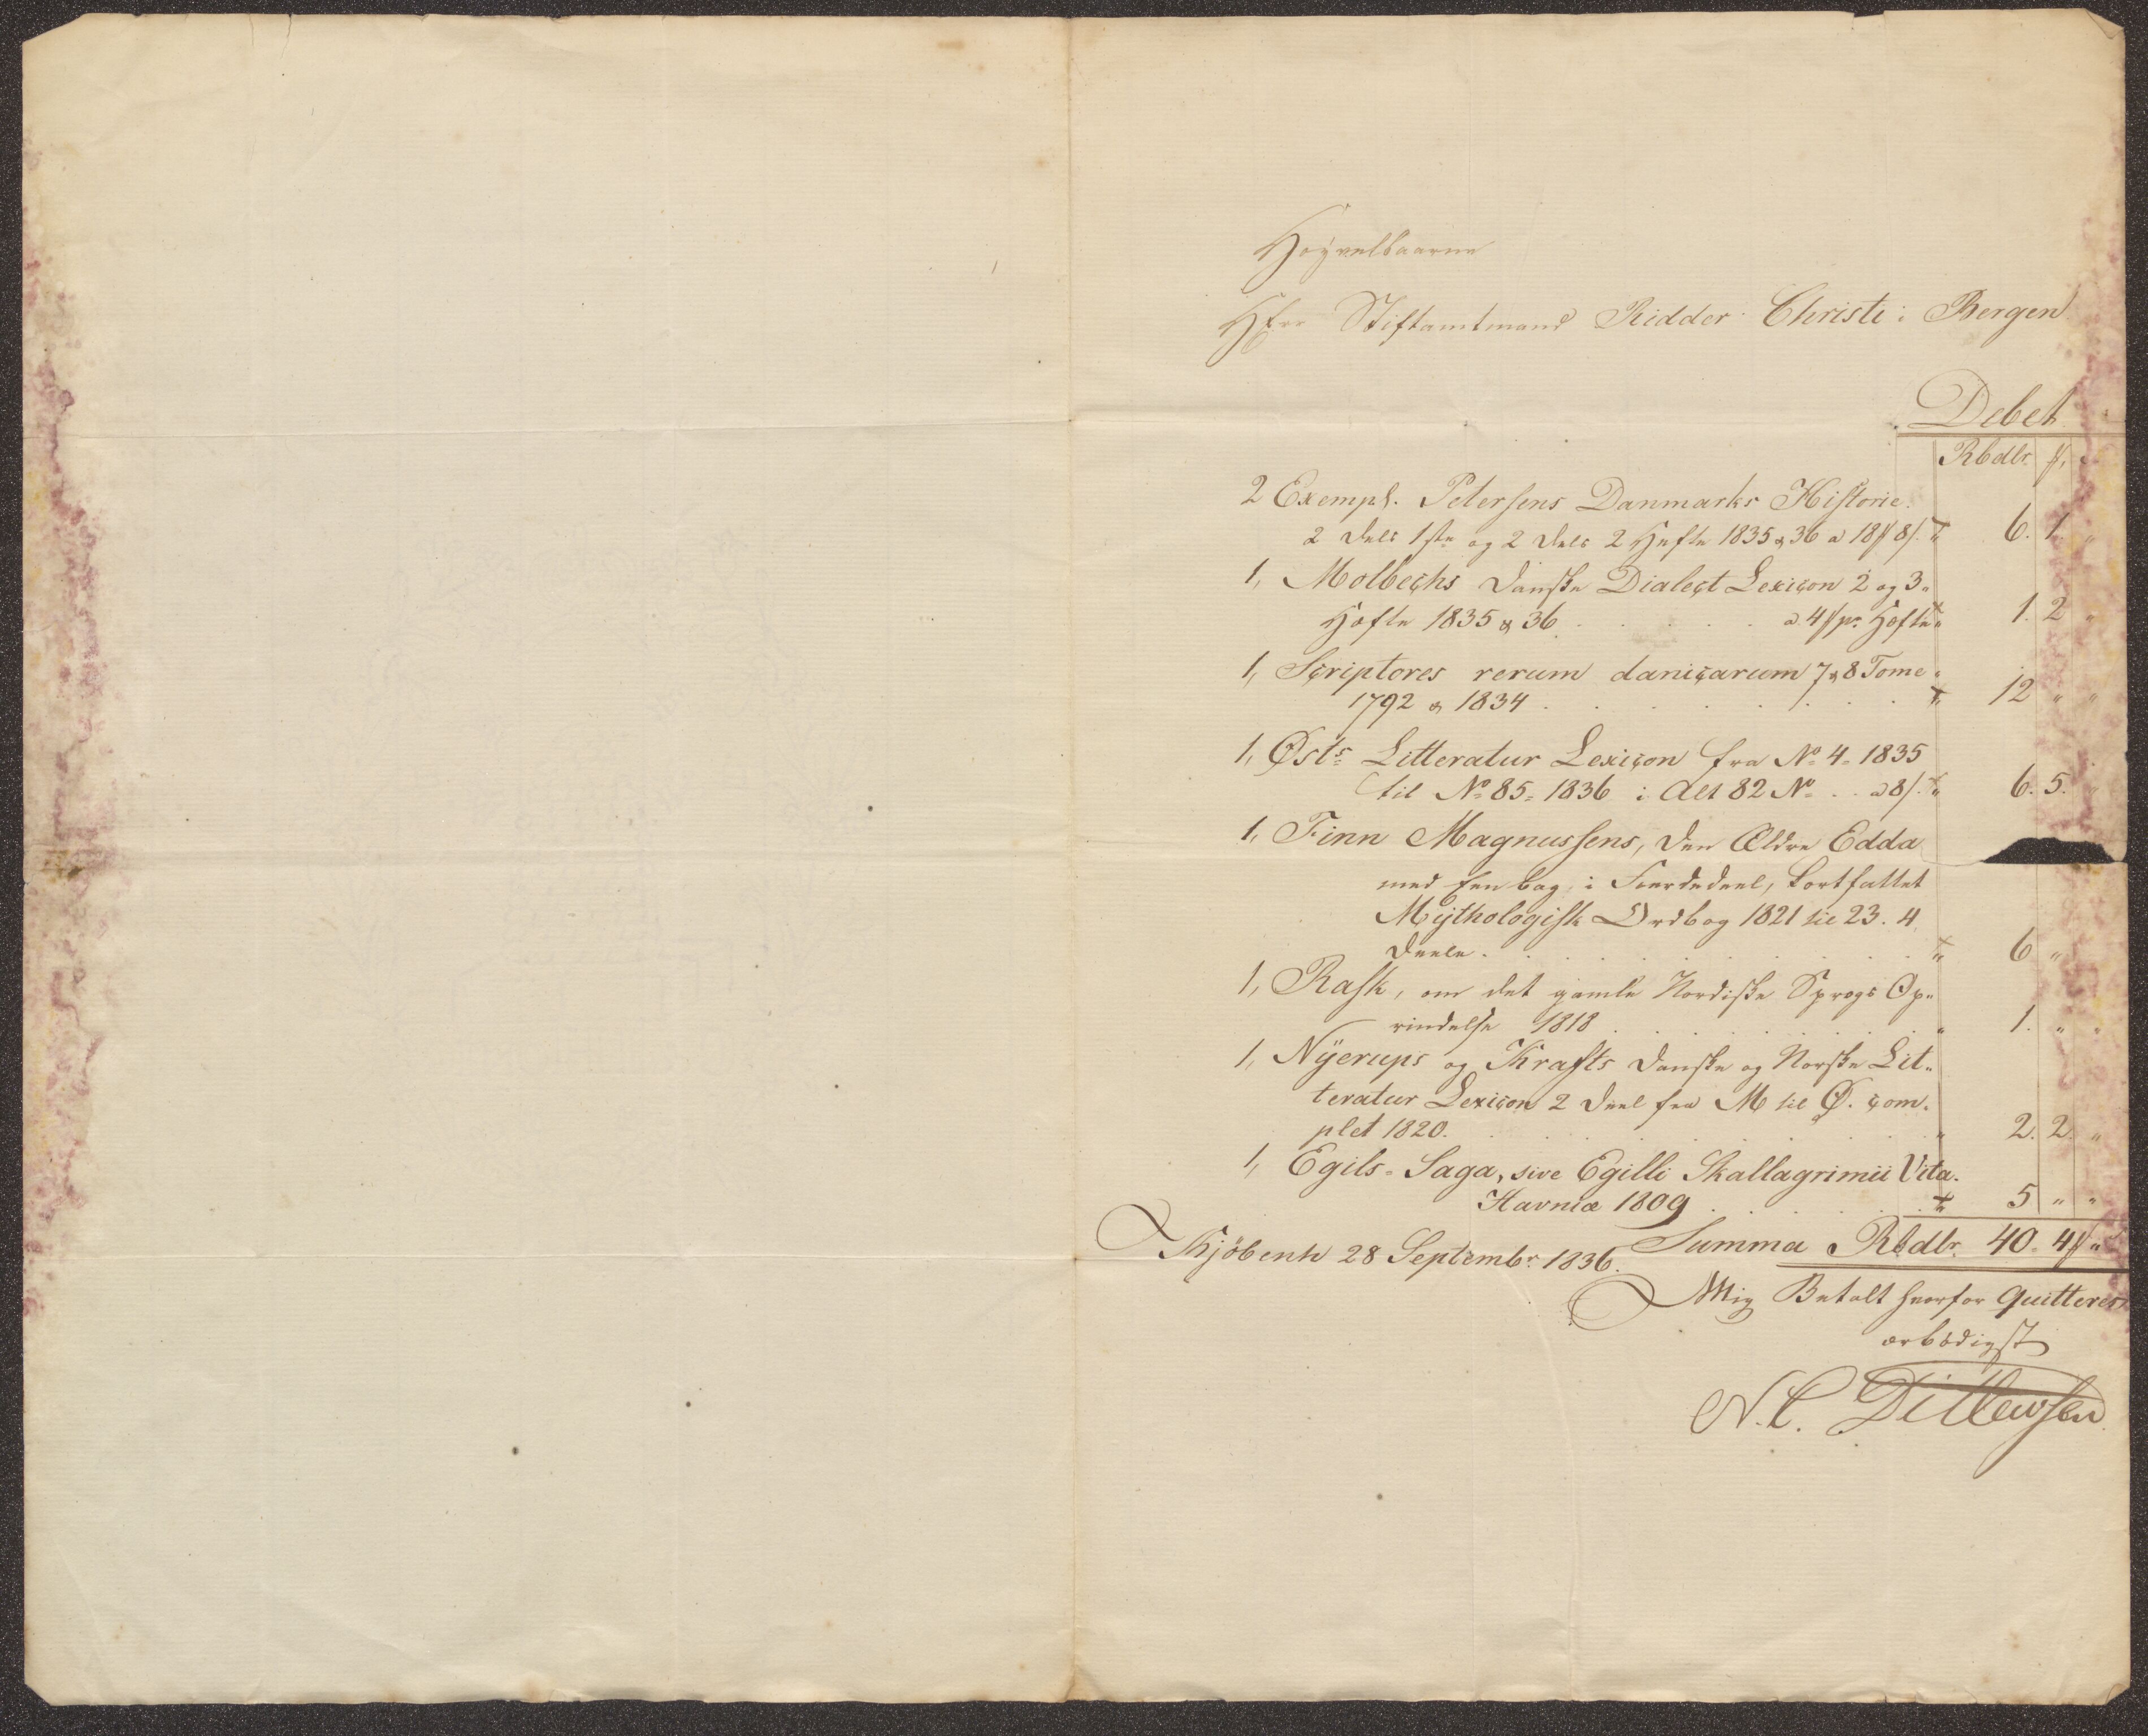 Høyvelbaarne
Herr Stiftamtmand Ridder Christi i Bergen
Debet
Rbdlr. ſ.
2 Exempl. Petersens Danmarks Historie.
2 Dels 1ste og 2 Dels 2 Hefte 1835 & 36 a 18 ſ 6. 1. "
1, Molbechs Danske Dialect Lexicon 2 og 3"
Hefte 1835 & 36 . . . . . a 4 pr. Hefte " 1. 2 "
1, Scriptores rerum danicarum 7 & 8 Tome
1792 & 1834 . . . . . . . 12 " "
1, Østs Litteratur Lexicon fra No. 4. 1835
til No. 85. 1836 i Alt 82 No. . . a 8 ſ. " 6. 5.
1, Finn Magnussens, Den Ældre Edda
med Een bag i Fierdedeel, kortfattet
Mythologisk Ordbog 1821 til 23. 4
Deele . . . . . . . . " 6 "
1, Rask, om det gamle Nordiske Sprogs Op"
rindelse 1818 . . . . . . . " 1. " "
1, Nÿerups og Krafts Danske og Norske Lit"
teratur Lexicon 2 Deel fra M til Ø. com"
plet 1820. . . . . . . . " 2. 2. "
1, Egils-Saga, sive Egilli Skallagrimii Vita.
Havniæ 1809 . . . . . " 5 " "
Kjöbenh 28 Septembr. 1836. Summa Rbdlr. 40. 4 "
Mig Betalt hvorfor quitteres
ærbødigst
N. C. Ditlewsen